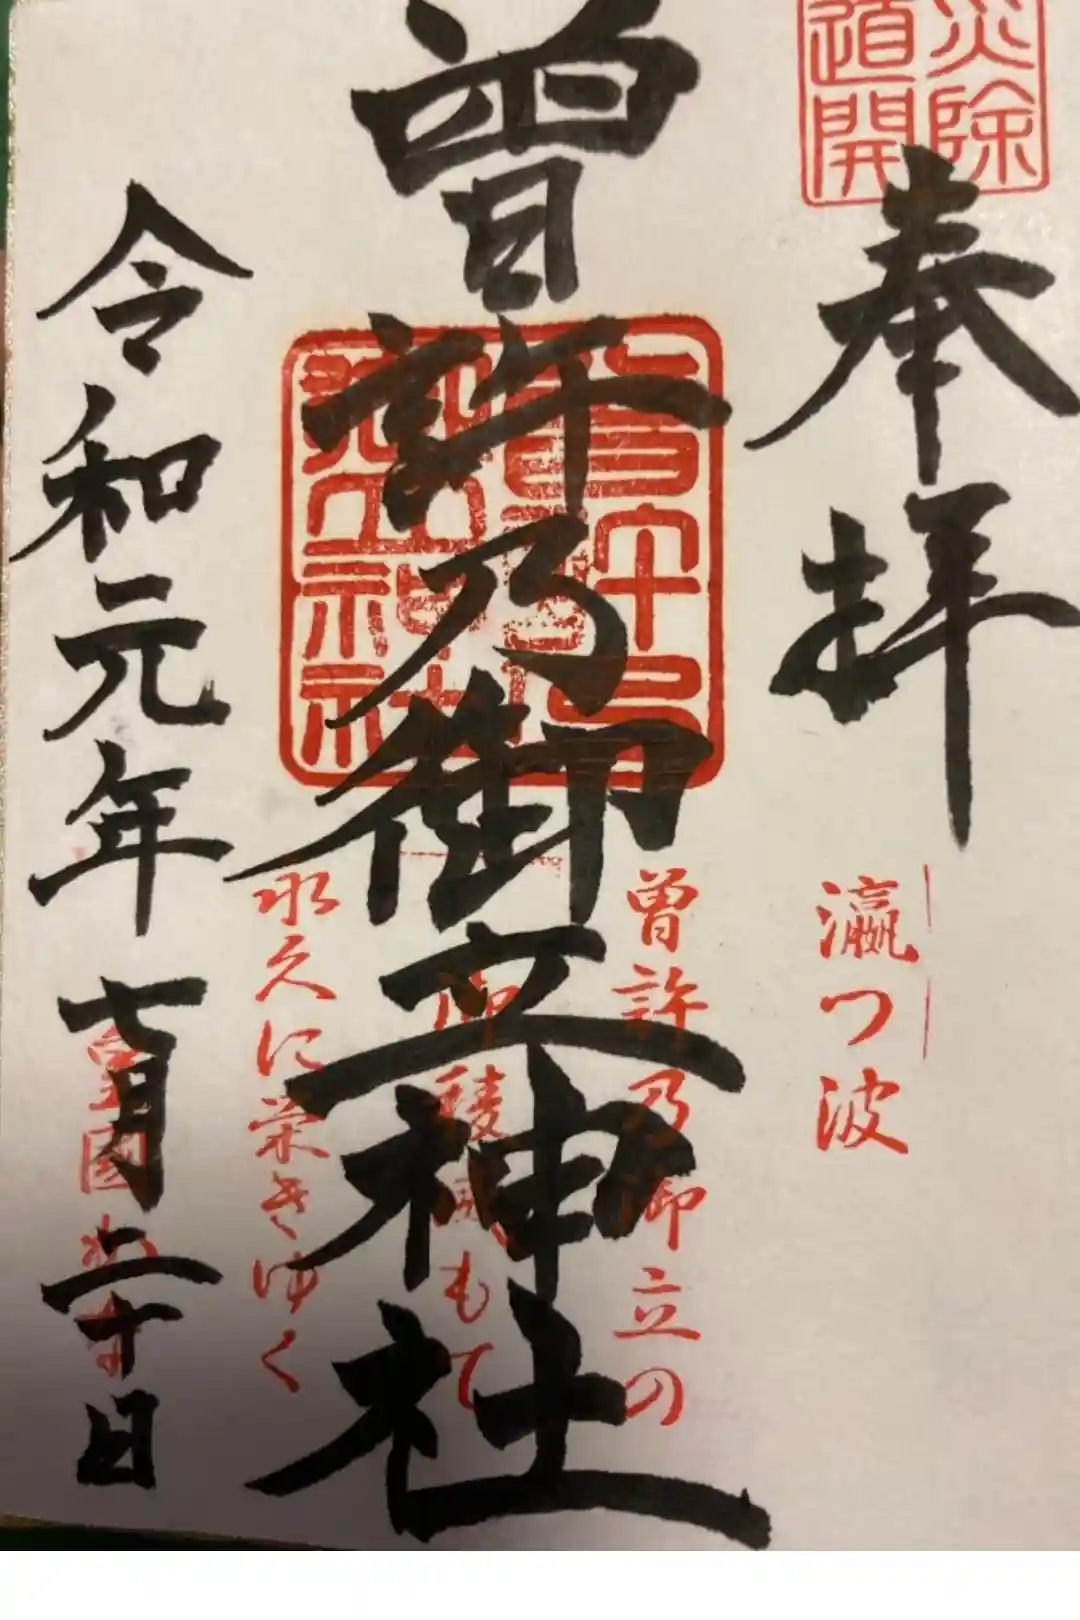 災除
道開
奉拝
瀛つ波
曽許乃御立の
曽許乃御立神社
御稜威もて
永久に栄きゆく
令和元年七月二十日
皇国